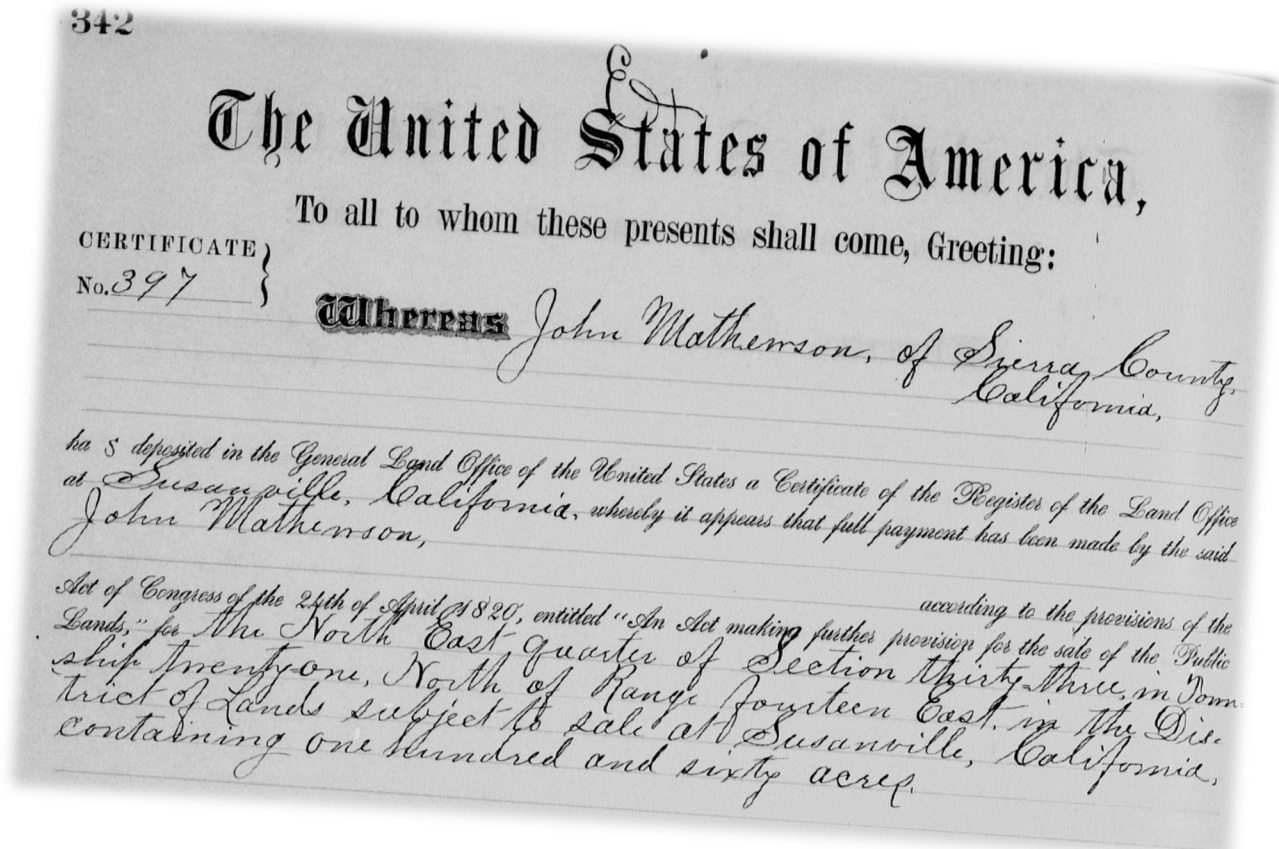 342
Ex
The United States of America,
To all to whom these presents shall come, Greeting:
CERTIFICATE
No. 397
Whereas John Mathewson, of Sierra County,
California,
ha s deposited in the General Land Office of the United States a Certificate of the Register of the Land Office
at Susanville, California, whereby it appears that full payment has been made by the said
John Mathewson,
according to the provisions of the
Act of Congress of the 24th of April, 1820, entitled "An Act making further provision for the sale of the Public
Lands," for the North East quarter of Section thirty-three, in Town-
ship twenty one, North of Range fourteen East, in the Dis-
trict of Lands subject to sale at Susanville, California,
containing one hundred and sixty acres.